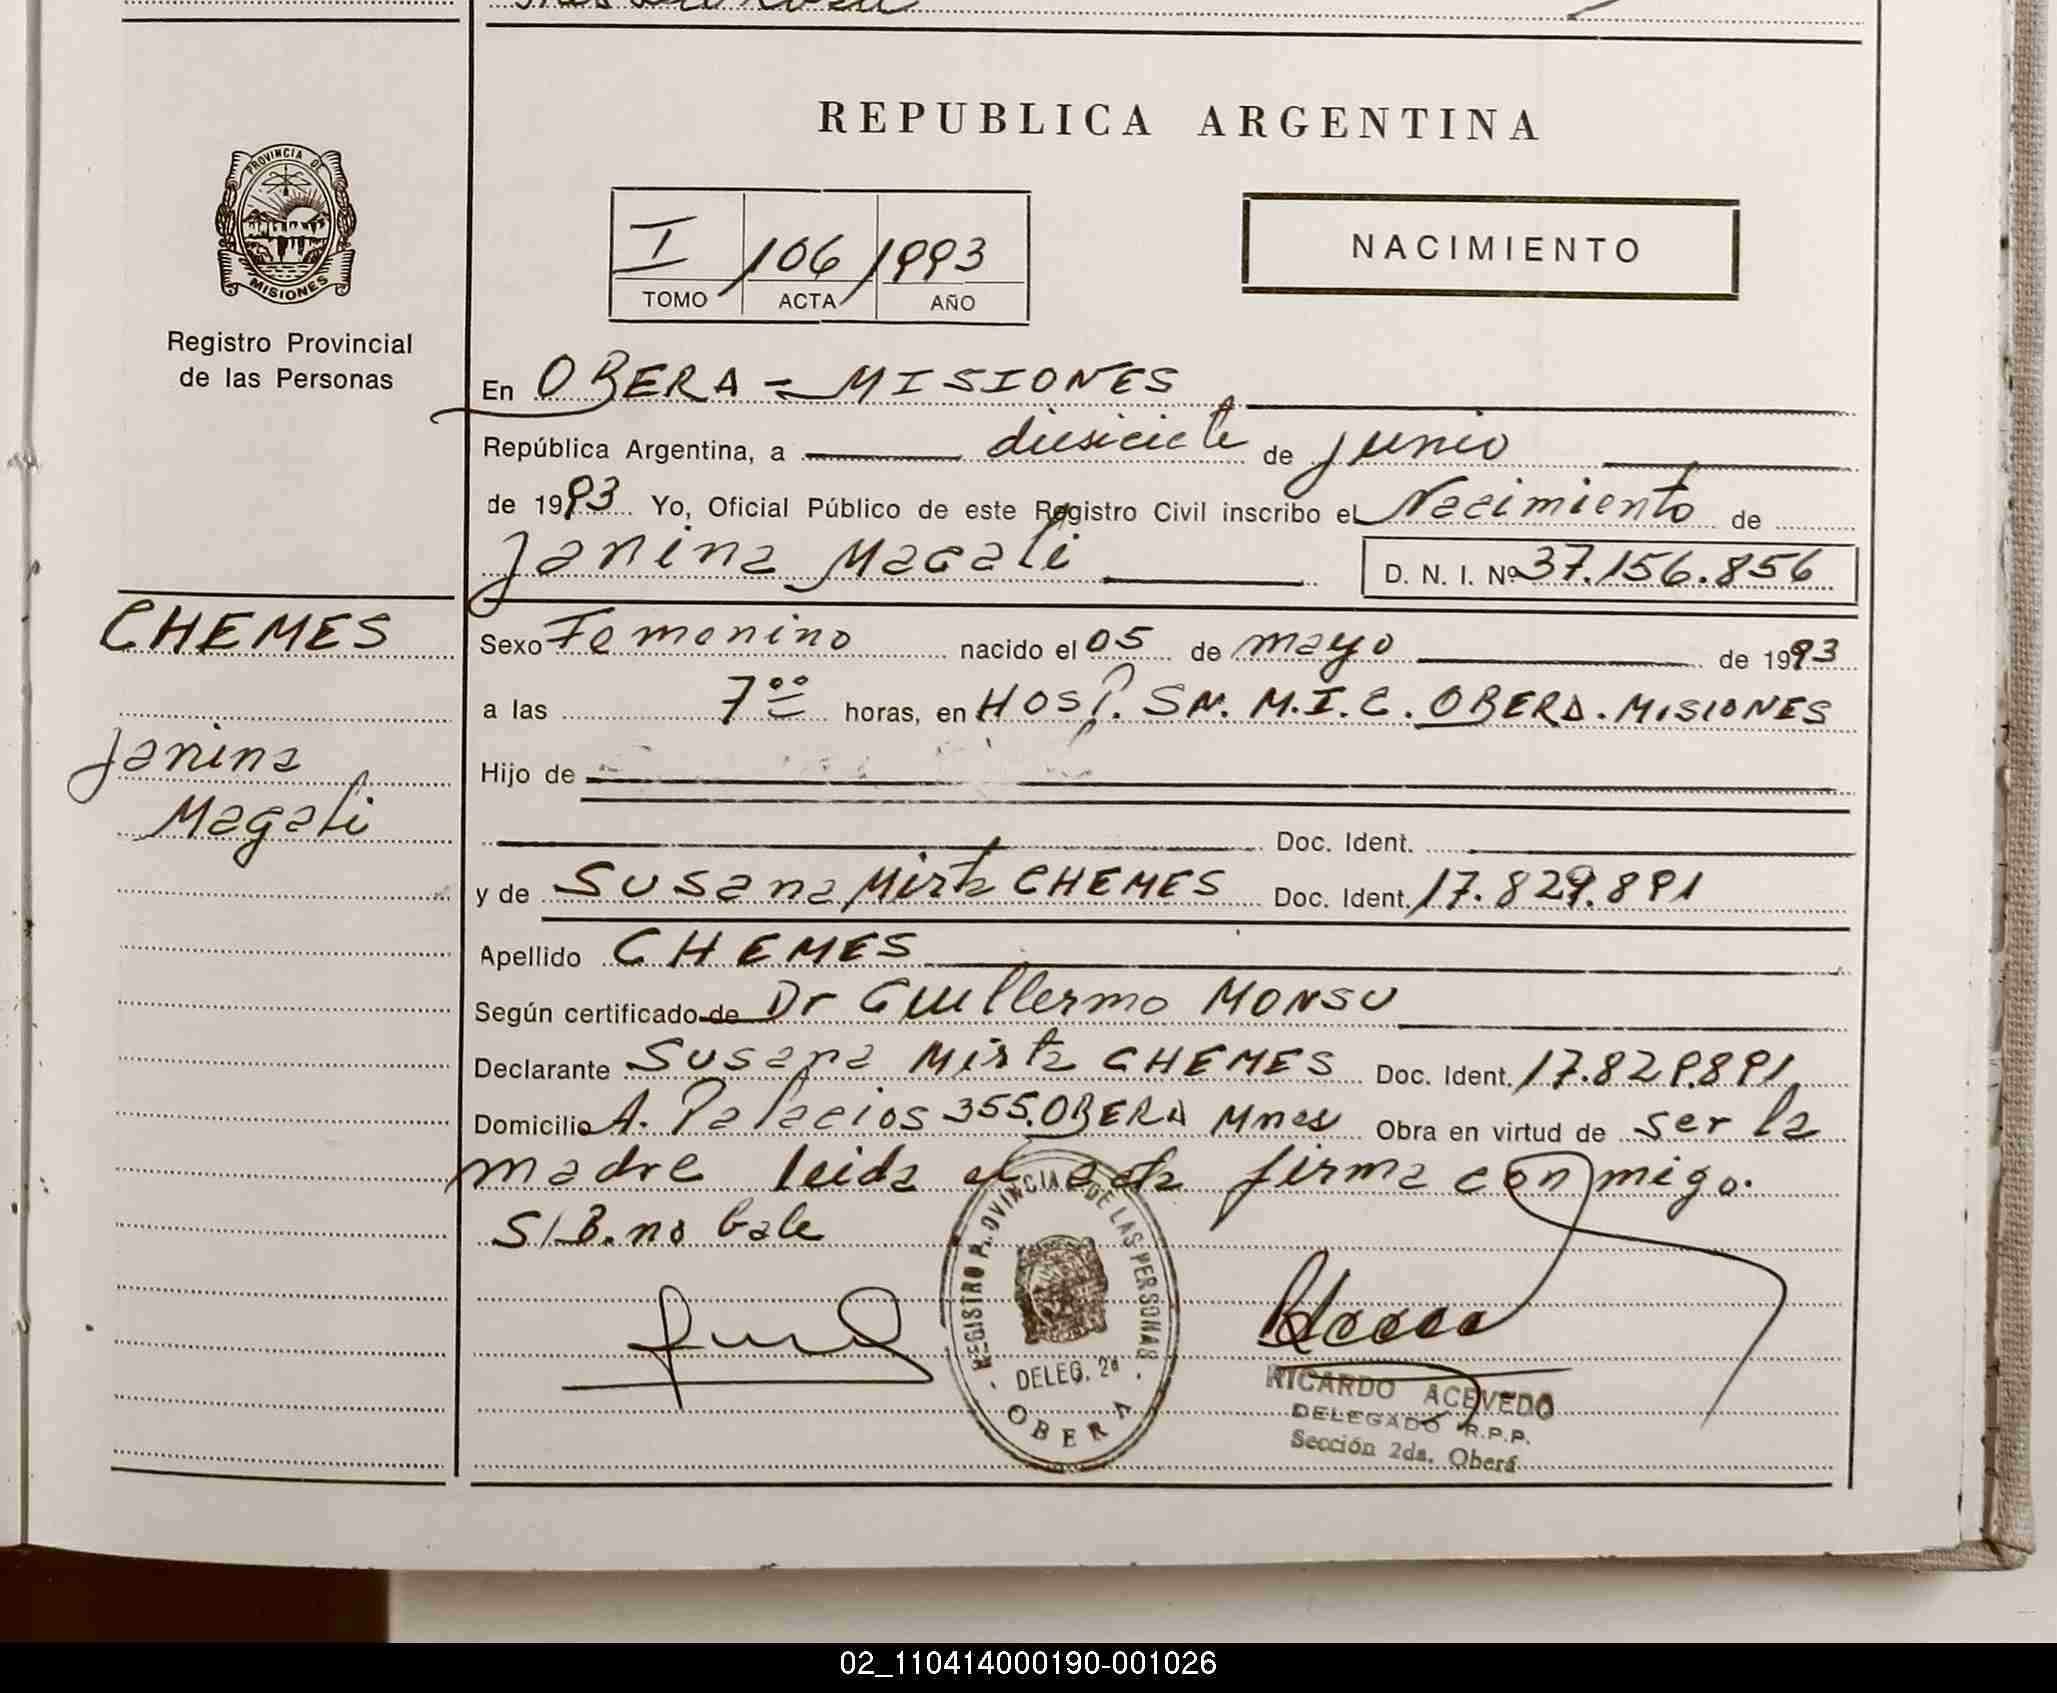 REPUBLICA ARGENTINA
PROVINCIA DE
MISIONES
Registro Provincial
de las Personas
I / 106 / 1993
TOMO ACTA AÑO
NACIMIENTO
En OBERA - MISIONES
República Argentina, a diesiciete de junio
de 1993 Yo, Oficial Público de este Registro Civil inscribo el Nacimiento de
Janina Magali D. N. I. Nº 37.156.856
CHEMES
Janina
Magali
Sexo Femenino nacido el 05 de mayo de 1993
a las 7⁰⁰ horas, en HOSP. SN. M.I.C. OBERA. MISIONES
Hijo de
Doc. Ident.
y de Susana Mirta CHEMES Doc. Ident. 17.829.891
Apellido CHEMES
Según certificado de Dr Guillermo MONSU
Declarante Susana Mirta CHEMES Doc. Ident. 17.829.891
Domicilio A. Palacios 355. OBERA Mnes Obra en virtud de ser la
madre leida el acta firma conmigo.
S/B. no bale
REGISTRO PROVINCIAL DE LAS PERSONAS
DELEG. 2ª
OBERA
RICARDO ACEVEDO
DELEGADO R.P.P.
Sección 2da. Oberá
02_110414000190-001026